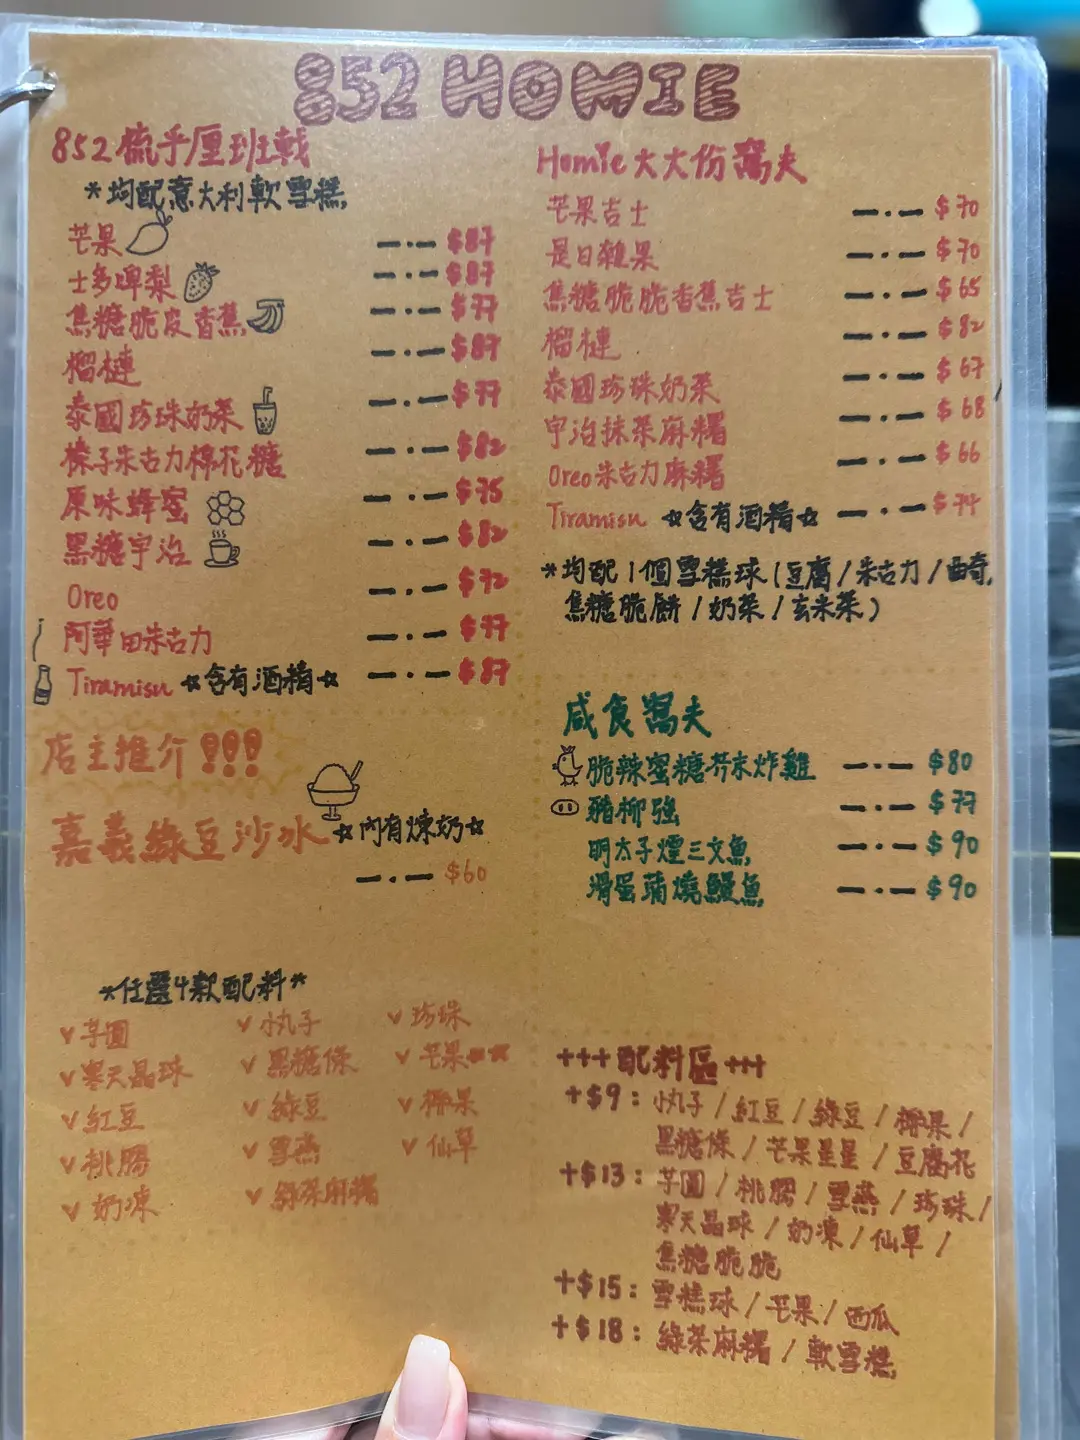 852 HOMIE
852梳乎厘班戟
*均配意大利軟雪糕
芒果 —·— $87
士多啤梨 —·— $87
焦糖脆皮香蕉 —·— $77
榴槤 —·— $87
泰國珍珠奶茶 —·— $77
榛子朱古力棉花糖 —·— $82
原味蜂蜜 —·— $75
黑糖宇治 —·— $82
Oreo —·— $72
阿華田朱古力 —·— $77
Tiramisu ☆含有酒精☆ —·— $87
店主推介!!!
嘉義綠豆沙冰 ☆內有煉奶☆
—·— $60
*任選4款配料*
✓芋圓 ✓小丸子 ✓珍珠
✓寒天晶球 ✓黑糖條 ✓芒果
✓紅豆 ✓綠豆 ✓椰果
✓桃膠 ✓雪燕 ✓仙草
✓奶凍 ✓綠茶麻糬
Homie大大份窩夫
芒果吉士 —·— $70
是日雜果 —·— $70
焦糖脆脆香蕉吉士 —·— $65
榴槤 —·— $82
泰國珍珠奶茶 —·— $67
宇治抹茶麻糬 —·— $68
Oreo朱古力麻糬 —·— $66
Tiramisu ☆含有酒精☆ —·— $74
*均配1個雪糕球(豆腐/朱古力/曲奇
焦糖脆餅/奶茶/玄米茶)
咸食窩夫
脆辣蜜糖芥末炸雞 —·— $80
豬柳強 —·— $77
明太子煙三文魚 —·— $90
滑蛋蒲燒鰻魚 —·— $90
+++配料區+++
+$9:小丸子/紅豆/綠豆/椰果/
黑糖條/芒果星星/豆腐花
+$13:芋圓/桃膠/雪燕/珍珠/
寒天晶球/奶凍/仙草/
焦糖脆脆
+$15:雪糕球/芒果/西瓜
+$18:綠茶麻糬/軟雪糕